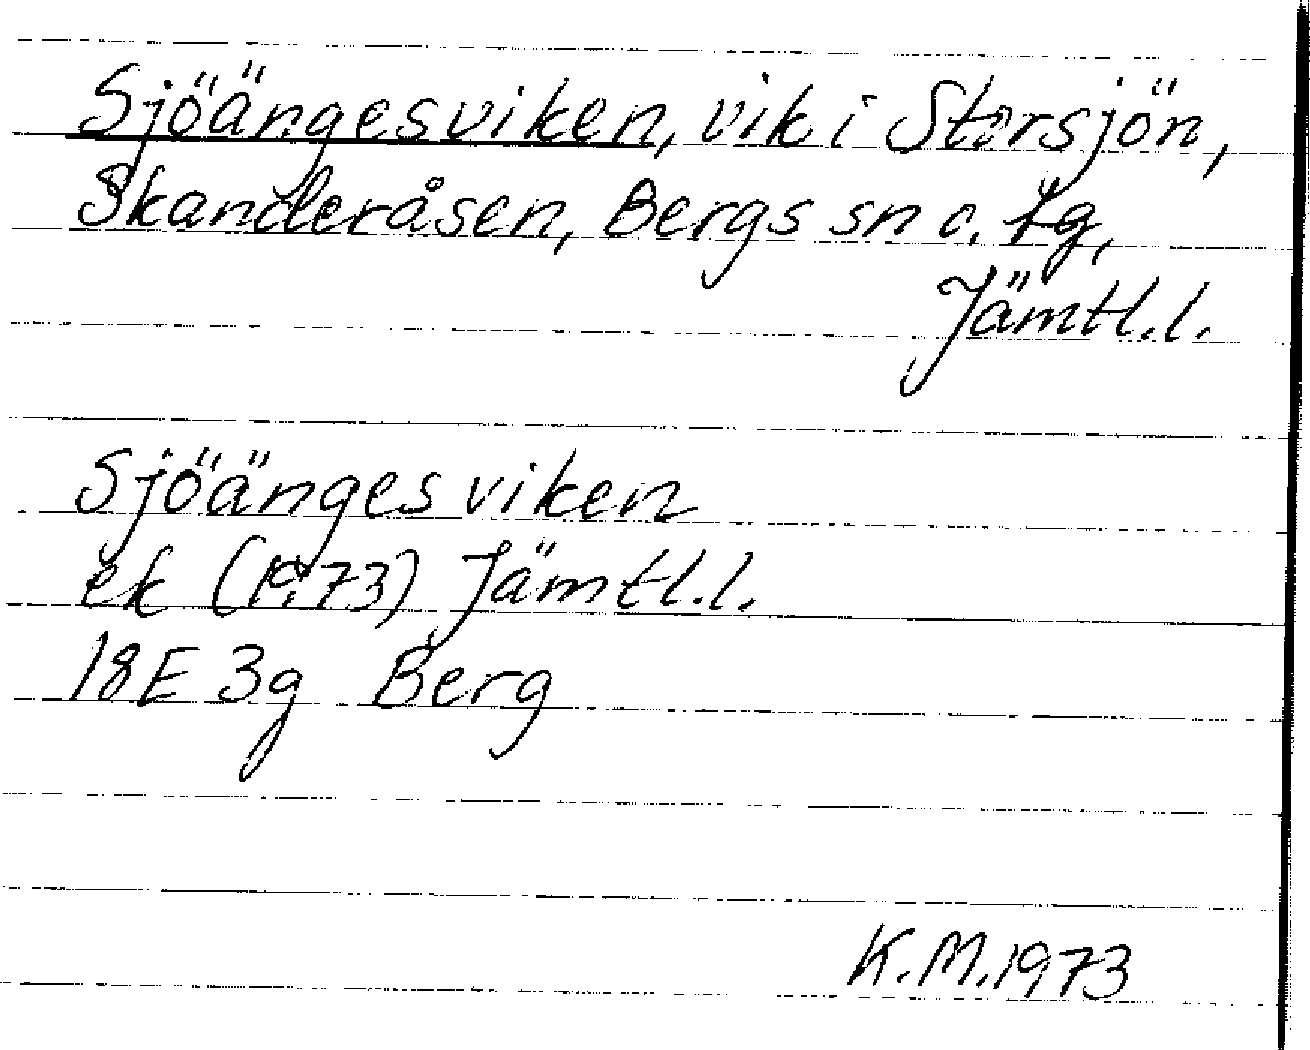 Sjöängesviken, vik i Storsjön,
Skanderåsen, Bergs sn o. tg,
Jämtl.l.
Sjöängesviken
ek (1973) Jämtl.l.
18E 3g Berg
K.M.1973